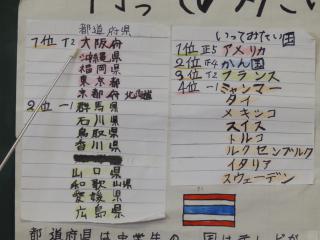 都道府県
1位 T2 大阪府
沖縄県
福岡県
東京都
京都府 北海道
2位 一1 群馬県
石川県
鳥取県
香川県
山口県
和歌山県
愛媛県
広島県
いっておみたい国
1位 正5 アメリカ
2位 正4 かん国
3位 T2 フランス
4位 一1 ミャンマー
タイ
メキシコ
スイス
トルコ
ルクセンブルク
イタリア
スウェーデン